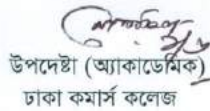 উপদেষ্টা (অ্যাকাডেমিক)
ঢাকা কমার্স কলেজ